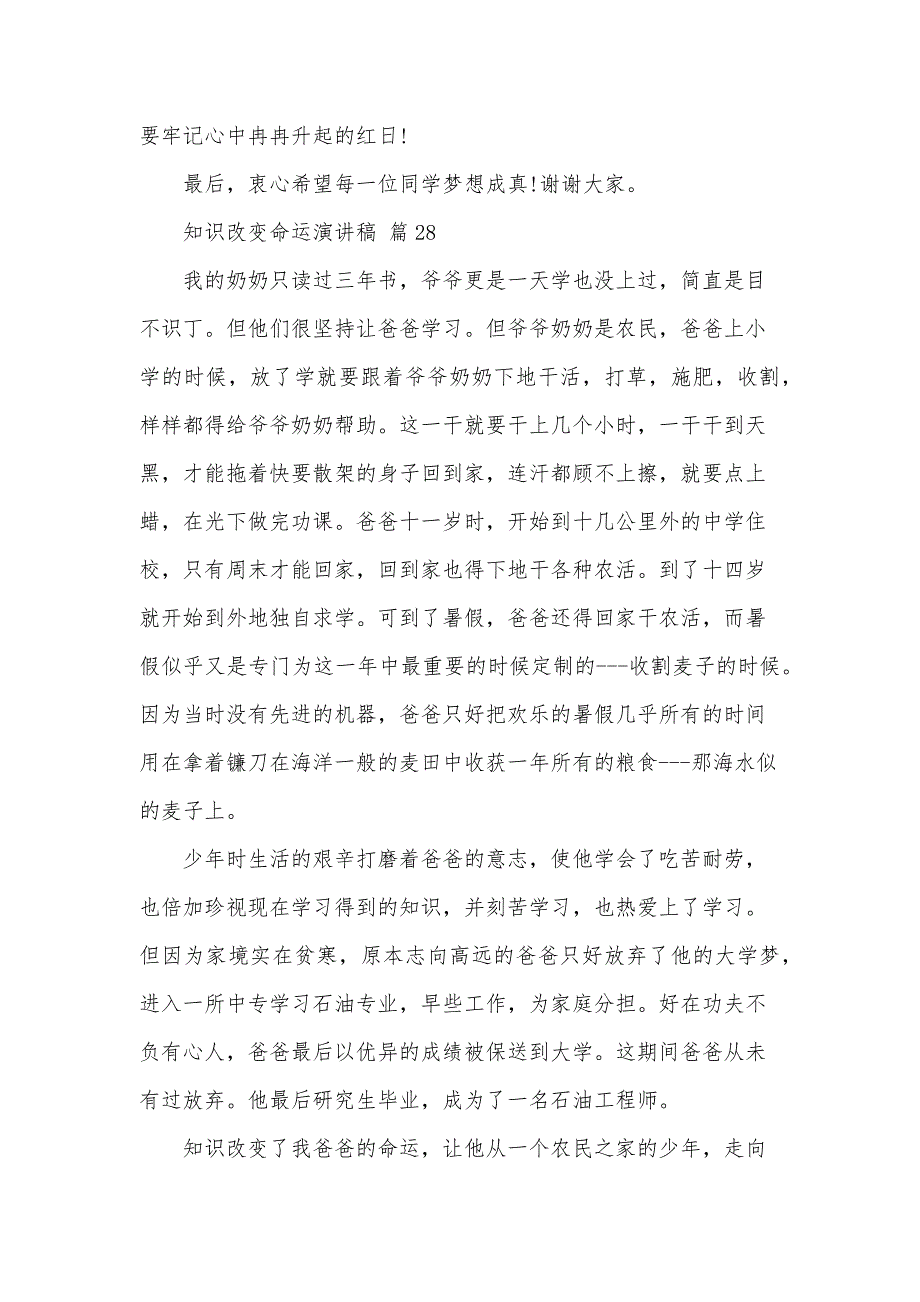 要牢记心中冉冉升起的红日!
最后，衷心希望每一位同学梦想成真!谢谢大家。
知识改变命运演讲稿 篇28
我的奶奶只读过三年书，爷爷更是一天学也没上过，简直是目
不识丁。但他们很坚持让爸爸学习。但爷爷奶奶是农民，爸爸上小
学的时候，放了学就要跟着爷爷奶奶下地干活，打草，施肥，收割，
样样都得给爷爷奶奶帮助。这一干就要干上几个小时，一干干到天
黑，才能拖着快要散架的身子回到家，连汗都顾不上擦，就要点上
蜡，在光下做完功课。爸爸十一岁时，开始到十几公里外的中学住
校，只有周末才能回家，回到家也得下地干各种农活。到了十四岁
就开始到外地独自求学。可到了暑假，爸爸还得回家干农活，而暑
假似乎又是专门为这一年中最重要的时候定制的---收割麦子的时候。
因为当时没有先进的机器，爸爸只好把欢乐的暑假几乎所有的时间
用在拿着镰刀在海洋一般的麦田中收获一年所有的粮食---那海水似
的麦子上。
少年时生活的艰辛打磨着爸爸的意志，使他学会了吃苦耐劳，
也倍加珍视现在学习得到的知识，并刻苦学习，也热爱上了学习。
但因为家境实在贫寒，原本志向高远的爸爸只好放弃了他的大学梦，
进入一所中专学习石油专业，早些工作，为家庭分担。好在功夫不
负有心人，爸爸最后以优异的成绩被保送到大学。这期间爸爸从未
有过放弃。他最后研究生毕业，成为了一名石油工程师。
知识改变了我爸爸的命运，让他从一个农民之家的少年，走向